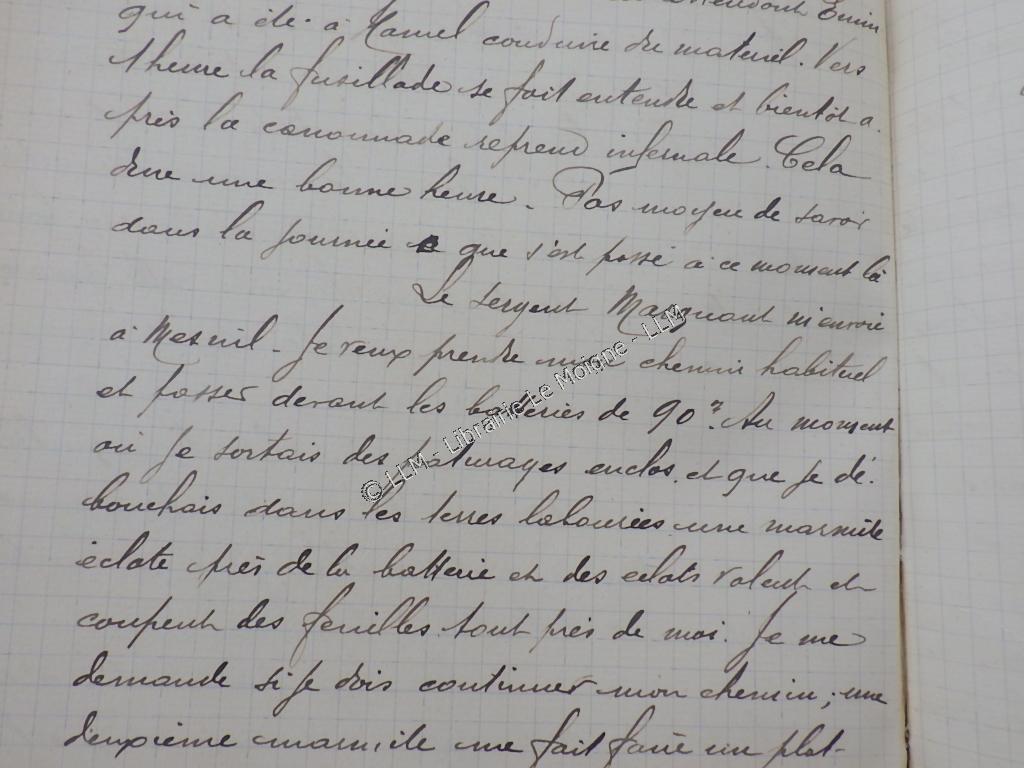 attendant Emin
qui a été à Hamel conduire du matériel. Vers
1 heure la fusillade se fait entendre et bientôt a.
près la canonnade reprend infernale. Cela
dure une bonne heure. Pas moyen de savoir
dans la journée ce que s'est passé à ce moment là
Le sergent m'envoie
à Mesnil. Je veux prendre mon chemin habituel
et passer devant les batteries de 90. Au moment
où je sortais des pâturages enclos, et que je dé.
bouchais dans les terres labourées une marmite
éclate près de la batterie et des éclats volent et
coupent des feuilles tout près de moi. Je me
demande si je dois continuer mon chemin; une
deuxième marmite me fait faire un plat-
© LLM - Librairie Le Moigne - LLM